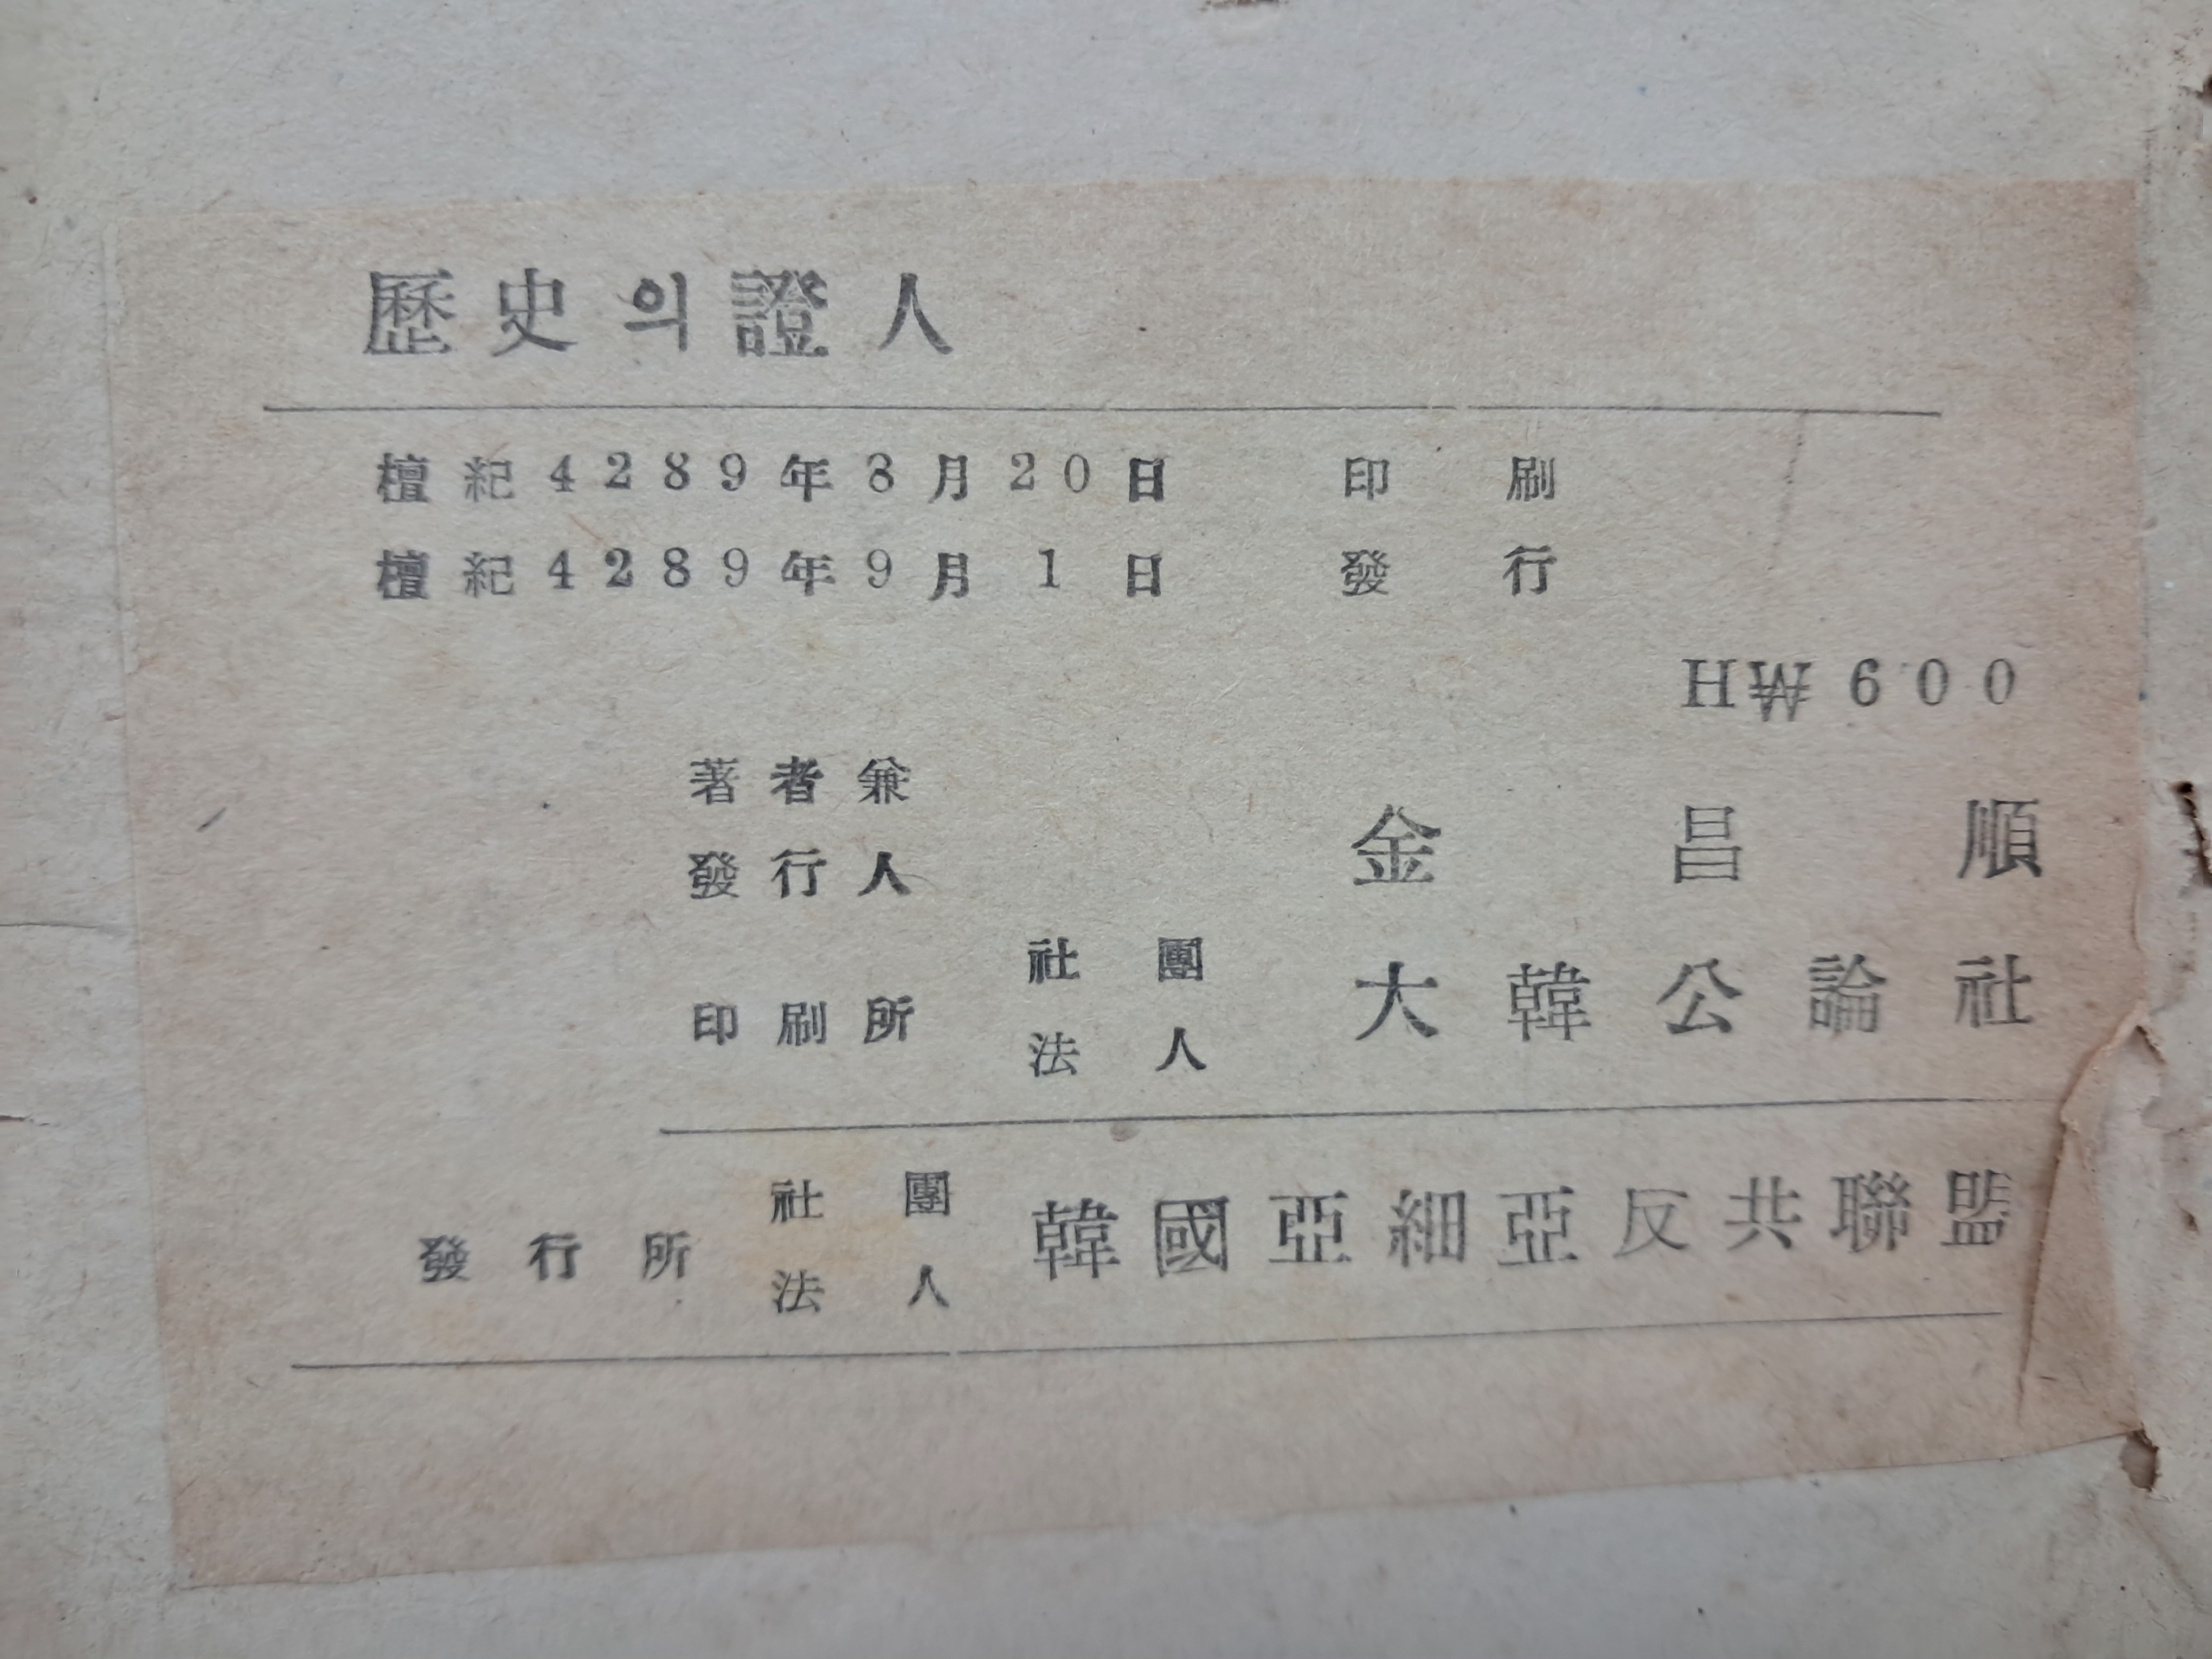 歷史의證人
檀紀4289年8月20日 印刷
檀紀4289年9月1日 發行
H₩600
著者兼
發行人 金昌順
印刷所 社團法人 大韓公論社
發行所 社團法人 韓國亞細亞反共聯盟